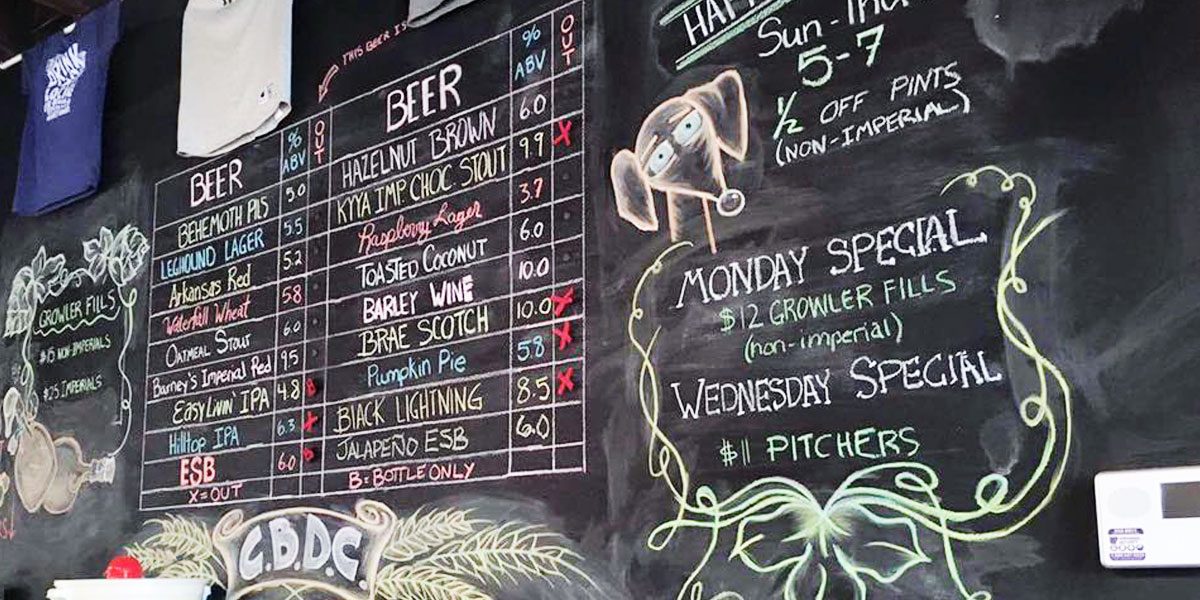 DRINK
LOCAL
GROWLER FILLS
$15 NON-IMPERIALS
$25 IMPERIALS
THIS BEER IS
BEER % ABV OUT
BEHEMOTH PILS 5.0
LEGHOUND LAGER 5.5
Arkansas Red 5.2
Waterfall Wheat 5.8
OATMEAL STOUT 6.0
Barney's Imperial Red 9.5
EASY LIVIN' IPA 4.8 B
Hilltop IPA 6.3 X
ESB 6.0 B
X = OUT
BEER % ABV OUT
HAZELNUT BROWN 6.0
KYYA IMP. CHOC. STOUT 9.9 X
Raspberry Lager 3.7
TOASTED COCONUT 6.0
BARLEY WINE 10.0
BRAE SCOTCH 10.0 X
Pumpkin Pie 5.8 X
BLACK LIGHTNING 8.5 X
JALAPEÑO ESB 6.0
B = BOTTLE ONLY
C.B.D.C.
Sun-Thu
5-7
½ OFF PINTS
(NON-IMPERIAL)
MONDAY SPECIAL
$12 GROWLER FILLS
(non-imperial)
WEDNESDAY SPECIAL
$11 PITCHERS